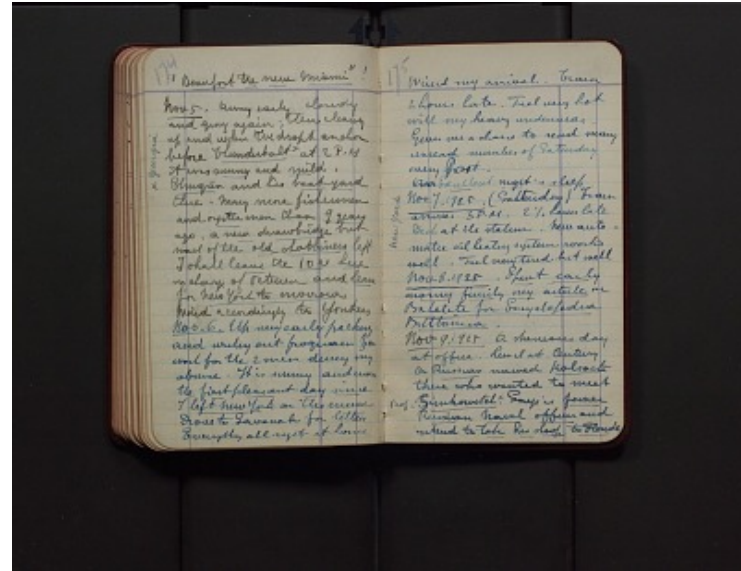 174
"Beaufort the new Miami"!
Nov 5. Sunny early cloudy
and gray again; then clears
up and when I've dropt anchor
before Thunderbolt at 2 P.M
it was sunny and mild.
and his boat yard
there. Many more fishermen
and oystermen than 9 years
ago. a new drawbridge but
most of the old shabbiness left
I shall leave the 10th here
in charge of and leave
for New York to morrow
Wired accordingly to Yonkers
Nov. 6. Up very early packing
and writing out program for
work for the 2 men during my
absence. It is sunny and warm
the first pleasant day since
I left New York on this cruise
Drove to Savanah for letters
Everything all right at home
x Georgia
175
Wired my arrival. Train
2 hours late. Feel very hot
with my heavy underwear
Gives me a chance to read many
unread numbers of Saturday
evening Post.
night's sleep
Nov 7, 1925. (Saturday) Train
arrives 2½ hours late
at the station. New auto-
matic oil heating system works
well. Feel very tired but well
Nov. 8. 1925. Spent early
morning my article on
Bakelite for Encyclopedia
Brittanica.
Nov 9, 1925 A strenuous day
at office. Lunch at Century
a Russian named
there who wanted to meet
Prof. Says is former
Russian Naval officer and
intend to take his sloop to Florida
New York